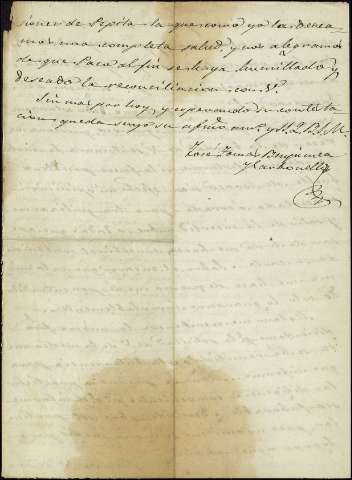 siones de Pepita la que como yo la desea
mos una completa salud, y nos alegramos
de que Paco al fin se haya humillado y
deseado la reconciliacion con V.
Sin mas por hoy, y esperando su contesta
cion queda suyo su afmo. am.º y S. Q. B. S. M.
José Tomás
y Carbonell